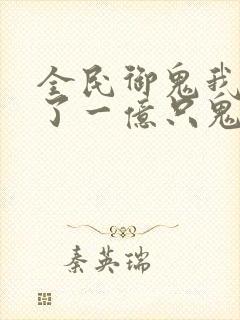 全民御鬼我
了一億只鬼
秦英瑞